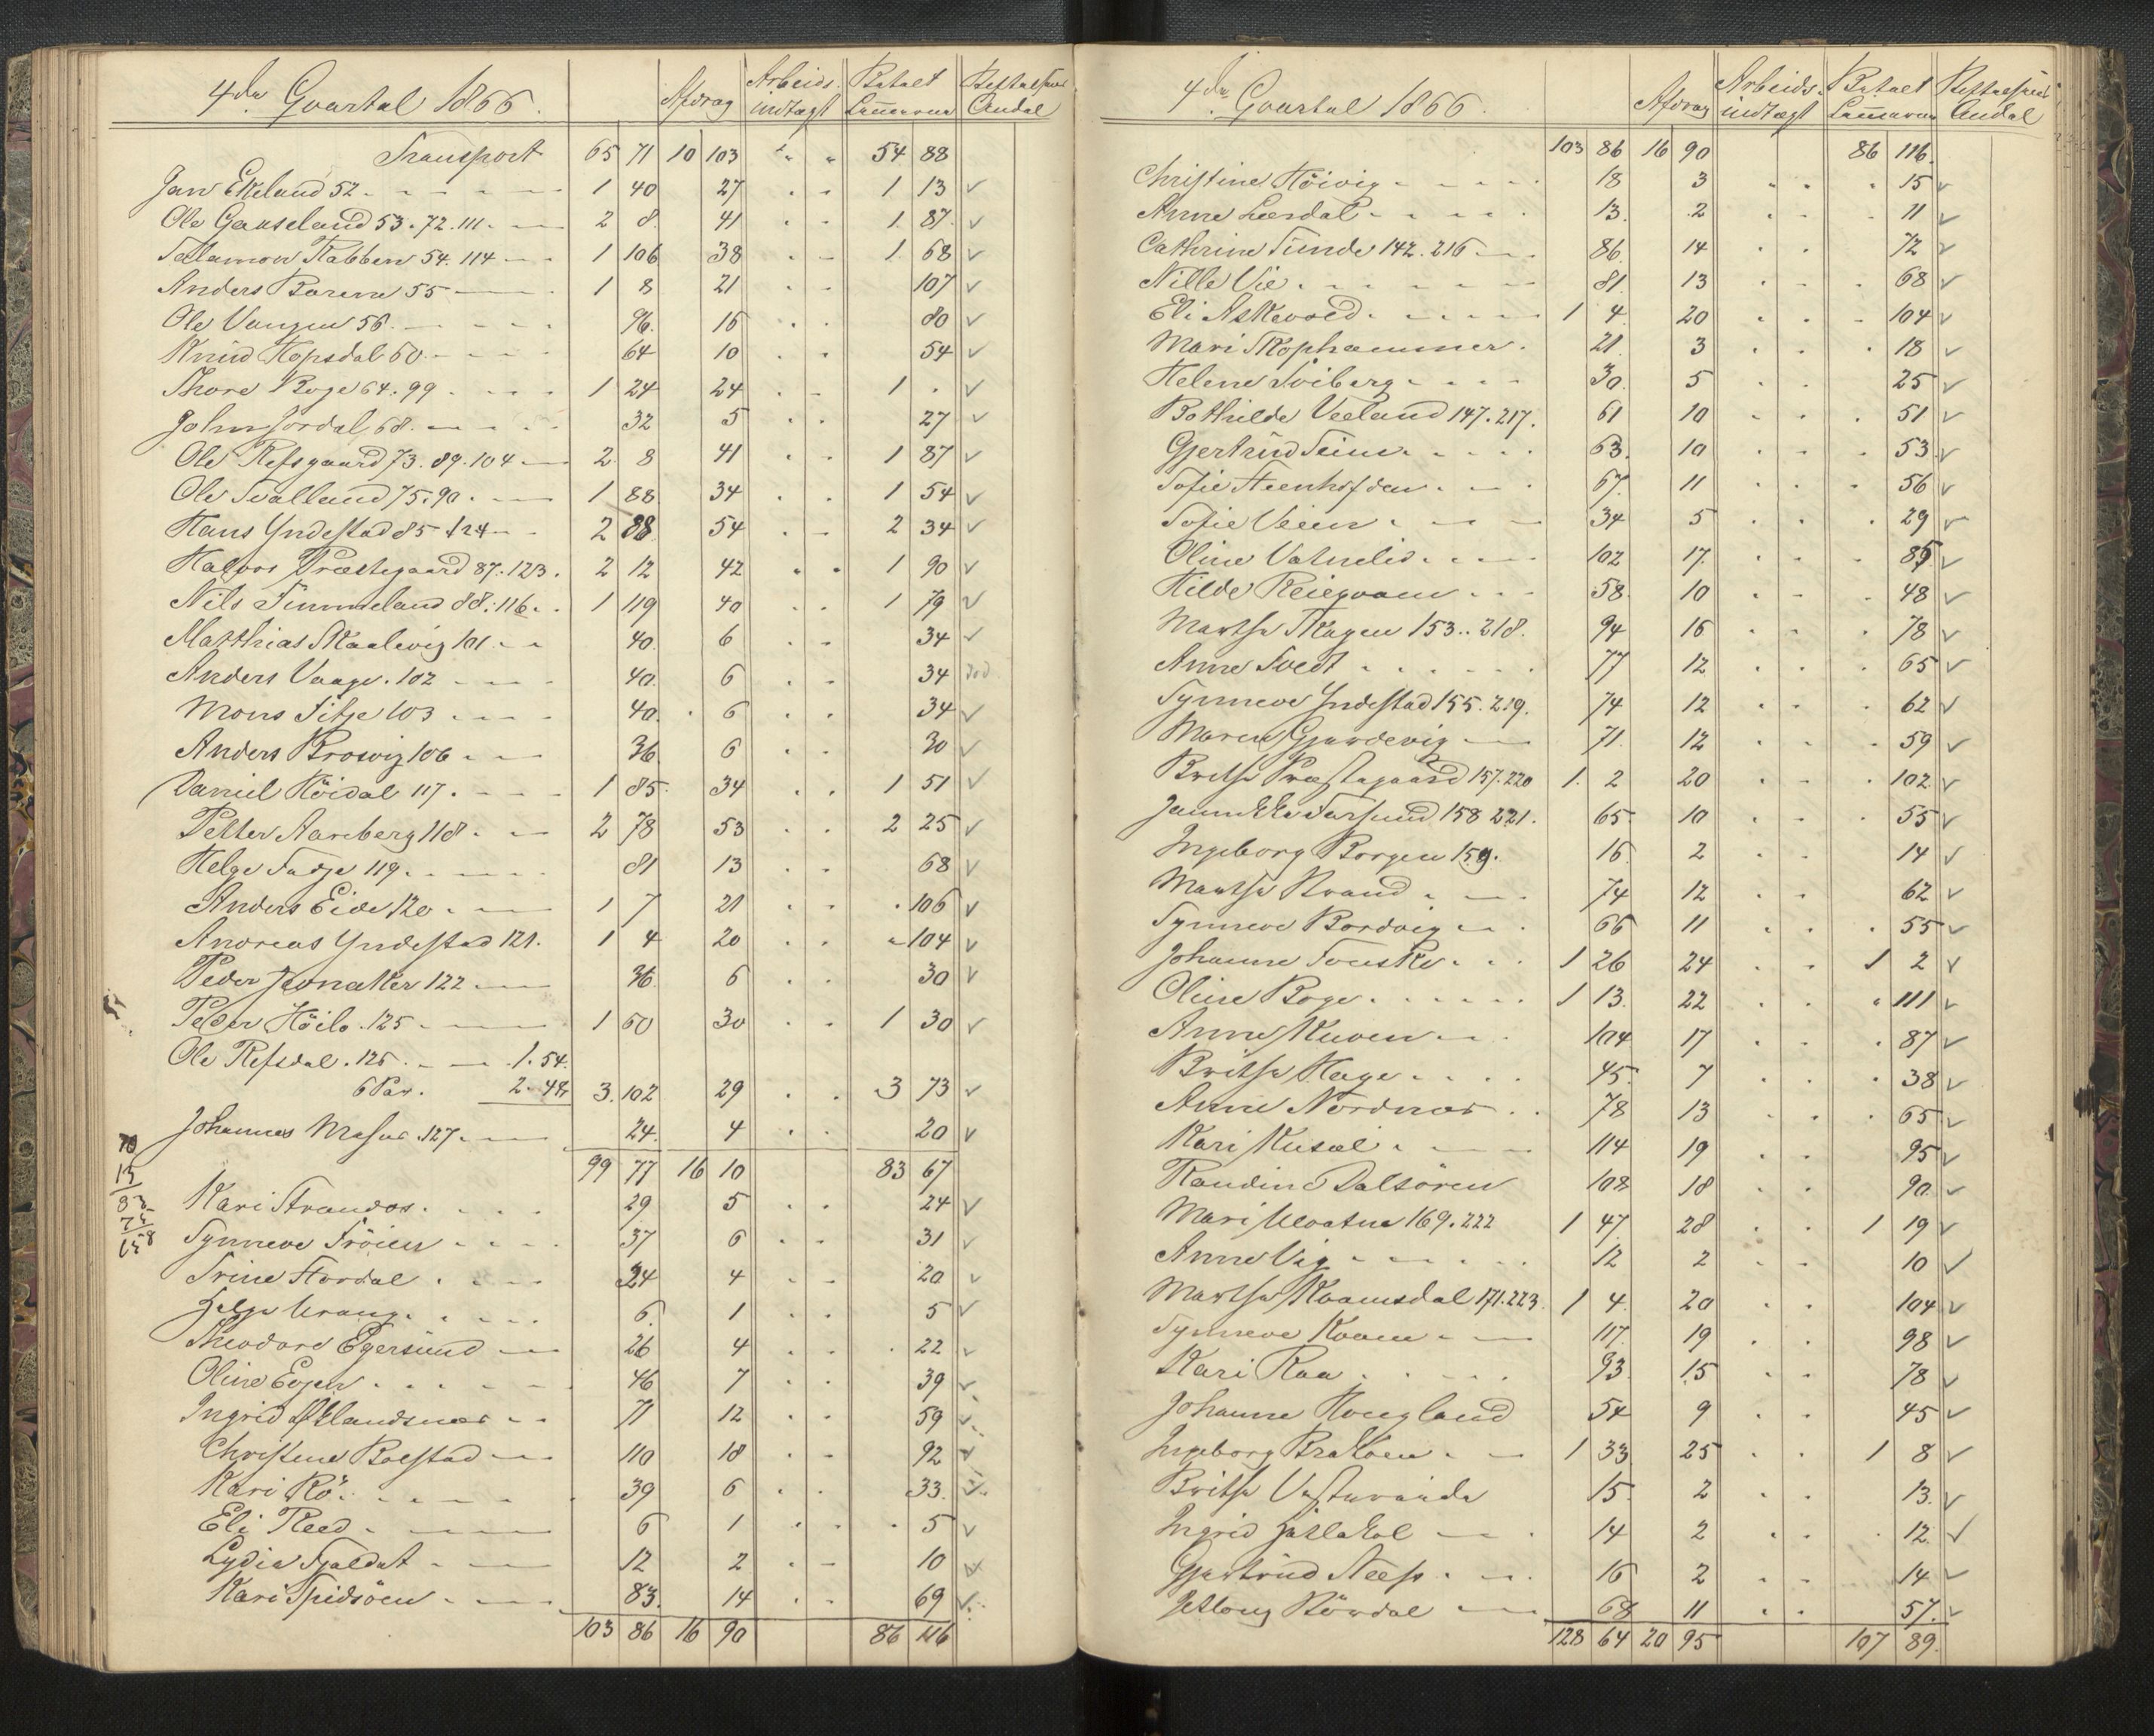 4de Qvartal 1866. Afdrag Arbeids- indtægt Betalt Andal
Transport 65 71 10 103 " " 54 88
Jan Ekeland 52 1 40 27 1 13 ✓
Ole Gaaseland 53. 72. 111. 2 8 41 1 87 ✓
Salamon Rabben 54. 114 1 106 38 1 68 ✓
Anders Barene 55 1 8 21 107 ✓
Ole Vangen 56. 96. 16 80 ✓
Knud Hopsdal 60 64 10 54 ✓
Thore Boge 64. 99 1 24 24 1 . ✓
John Jordal 68. 32 5 27 ✓
Ole Refsgaard 73. 89. 104 2 8 41 1 87 ✓
Ole Svalland 75. 90. 1 88 34 1 54 ✓
Hans Yndestad 85 124 2 88 54 2 34 ✓
Halvor Præstegaard 87. 123. 2 12 42 1 90 ✓
Nils Tummeland 88. 116. 1 119 40 1 79 ✓
Matthias Skaalevig 101 40. 6 34 ✓
Anders Vaage. 102 40. 6 34
Mons Sitje 103 40. 6 34 ✓
Anders Brosvig 106 36 6 30 ✓
Daniel Höidal 117. 1 85. 34 1 51 ✓
Petter Aareberg 118. 2 78 53 2 25 ✓
Helge Tadje 119. 81 13 68 ✓
Anders Eide 120. 1 7 21 106 ✓
Andreas Yndestad 121. 1 4 20 104 ✓
Peder 122 36. 6 30 ✓
Peder Höilo. 125. 1 60 30 1 30 ✓
Ole Refsdal. 126. 1. 54.
6 Par. 2. 48 3. 102 29 3 73 ✓
Johannes Masnes. 127. 24. 4 20 ✓
99 77 16 10 83 67
Kari Strandos. 29 5 24 ✓
Synneve Fröien 37 6 31 ✓
Trine Hordal 24 4 20 ✓
Helge Urang. 6. 1 5 ✓
Theodore Egersund 26 4 22 ✓
Oline Evjen 46 7 39 ✓
Ingrid Øklandsnæs 71 12 59 ✓
Christine Bolstad 110 18 92 ✓
Kari Rö. 39 6 33 ✓
Eli Reed. 6 1 5 ✓
Lydia Tjaldat 12 2 10 ✓
Kari Spidsöen 83. 14 69 ✓
103 86 16 90 86 116
4de Qvartal 1866. Afdrag Arbeids- indtægt Betalt Andal
103 86 16 90 86 116.
Christine Höivig 18 3 15 ✓
Anne Lærdal 13. 2 11 ✓
Cathrine Tunde 142. 216 86. 14 72 ✓
Nille Vie 81. 13 68 ✓
Eli Askevold 1 4 20 104 ✓
Mari Skophammer. 21. 3 18 ✓
Helene Soiberg 30. 5 25 ✓
Bothilde Veeland 147. 217. 61 10 51 ✓
Gjertrud Seim 63. 10 53 ✓
Sofie Steenhofden 67. 11 56 ✓
Sofie Veien 34 5 29 ✓
Oline Vatnelid 102 17. 85 ✓
Hilde Reieqvam 58. 10 48 ✓
Marthe Skagen 153. 218. 94 16 78 ✓
Anne Tvedt 77 12 65 ✓
Synneve Yndestad 155. 219. 74 12 62 ✓
Maren Gjerdevig 71. 12 59 ✓
Brithe Præstegaard 157. 220 1. 2 20 102 ✓
Jannikke Farsund 158 221. 65. 10 55 ✓
Ingeborg Borgen 159. 16. 2 14 ✓
Marthe Strand 74 12 62 ✓
Synneve Bordvig 66 11 55 ✓
Johanne Fonske 1 26 24 1 2 ✓
Oline Boge 1 13. 22 111 ✓
Anne Kuven 104 17 87 ✓
Brithe Hage 45. 7 38 ✓
Anne Nordnæs 78 13 65 ✓
Kari Kusæl 114 19 95 ✓
Randine Dalsören 108 18 90. ✓
Mari Ulvatne 169. 222 1 47 28 1 19 ✓
Anne Vig 12 2 10 ✓
Marthe Kvamsdal 171. 223. 1 4 20 104 ✓
Synneve Kvam 117. 19 98 ✓
Kari Raa 93 15 78 ✓
Johanne Hougland 54 9 45 ✓
Ingeborg Brakvam 1 33 25 1 8 ✓
Brithe 15. 2 13. ✓
Ingrid 14 2 12 ✓
Gjertrud Neese 16 2 14 ✓
Rördal 68 11 57. ✓
128 64 20 95 107 89.